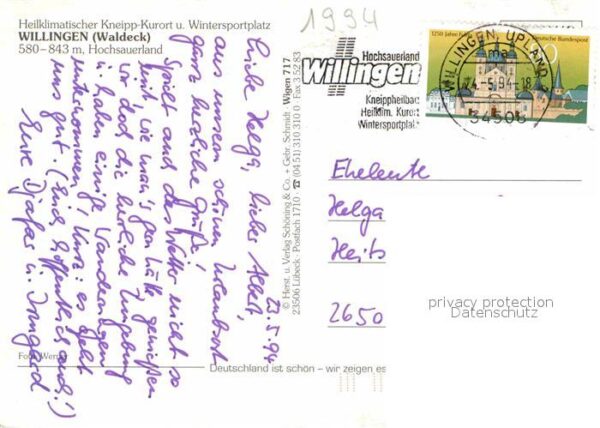 1994
Heilklimatischer Kneipp-Kurort u. Wintersportplatz
WILLINGEN (Waldeck)
580–843 m, Hochsauerland
23.5.94
Liebe Helga, lieber Albert,
aus unserem schönen Urlaubsort
ganz herzliche Grüße!
Spielt auch das Wetter nicht so
mit wie man's gern hätte, genießen
wir doch die herrliche Umgebung
u. haben einige Wanderungen
unternommen. Kurz: es geht
uns gut. (Euch hoffentlich auch!)
Eure u. Irmgard
Foto Werner
© Herst. u. Verlag Schöning & Co. + Gebr. Schmidt
23506 Lübeck · Postfach 1710 · ☎ (04 51) 310 310 · Fax 3 52 83
Wigen 717
Deutschland ist schön – wir zeigen es
Hochsauerland
Willingen
Kneippheilbad
Heilklim. Kurort
Wintersportplatz
1250 Jahre Fulda
Deutsche Bundespost
WILLINGEN, UPLAND
ma
24.-5.94-18
34508
Eheleute
Helga
2650
privacy protection
Datenschutz